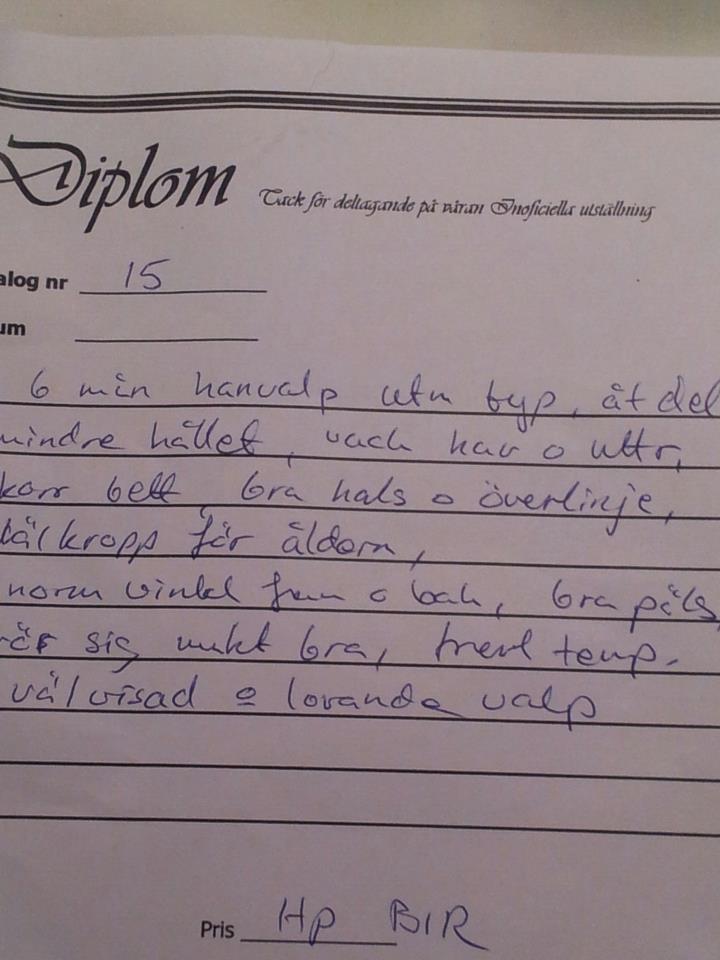 Diplom Tack för deltagande på våran Inoficiella utställning
alog nr 15
um
6 mån hanvalp utm typ, åt det
mindre hållet, vack huv o uttr,
korr bett, bra hals o överlinje,
bål kropp för åldern,
norm vinkl fram o bak, bra päls,
rör sig mkt bra, trevl temp.
välvisad o lovande valp
Pris Hp BIR